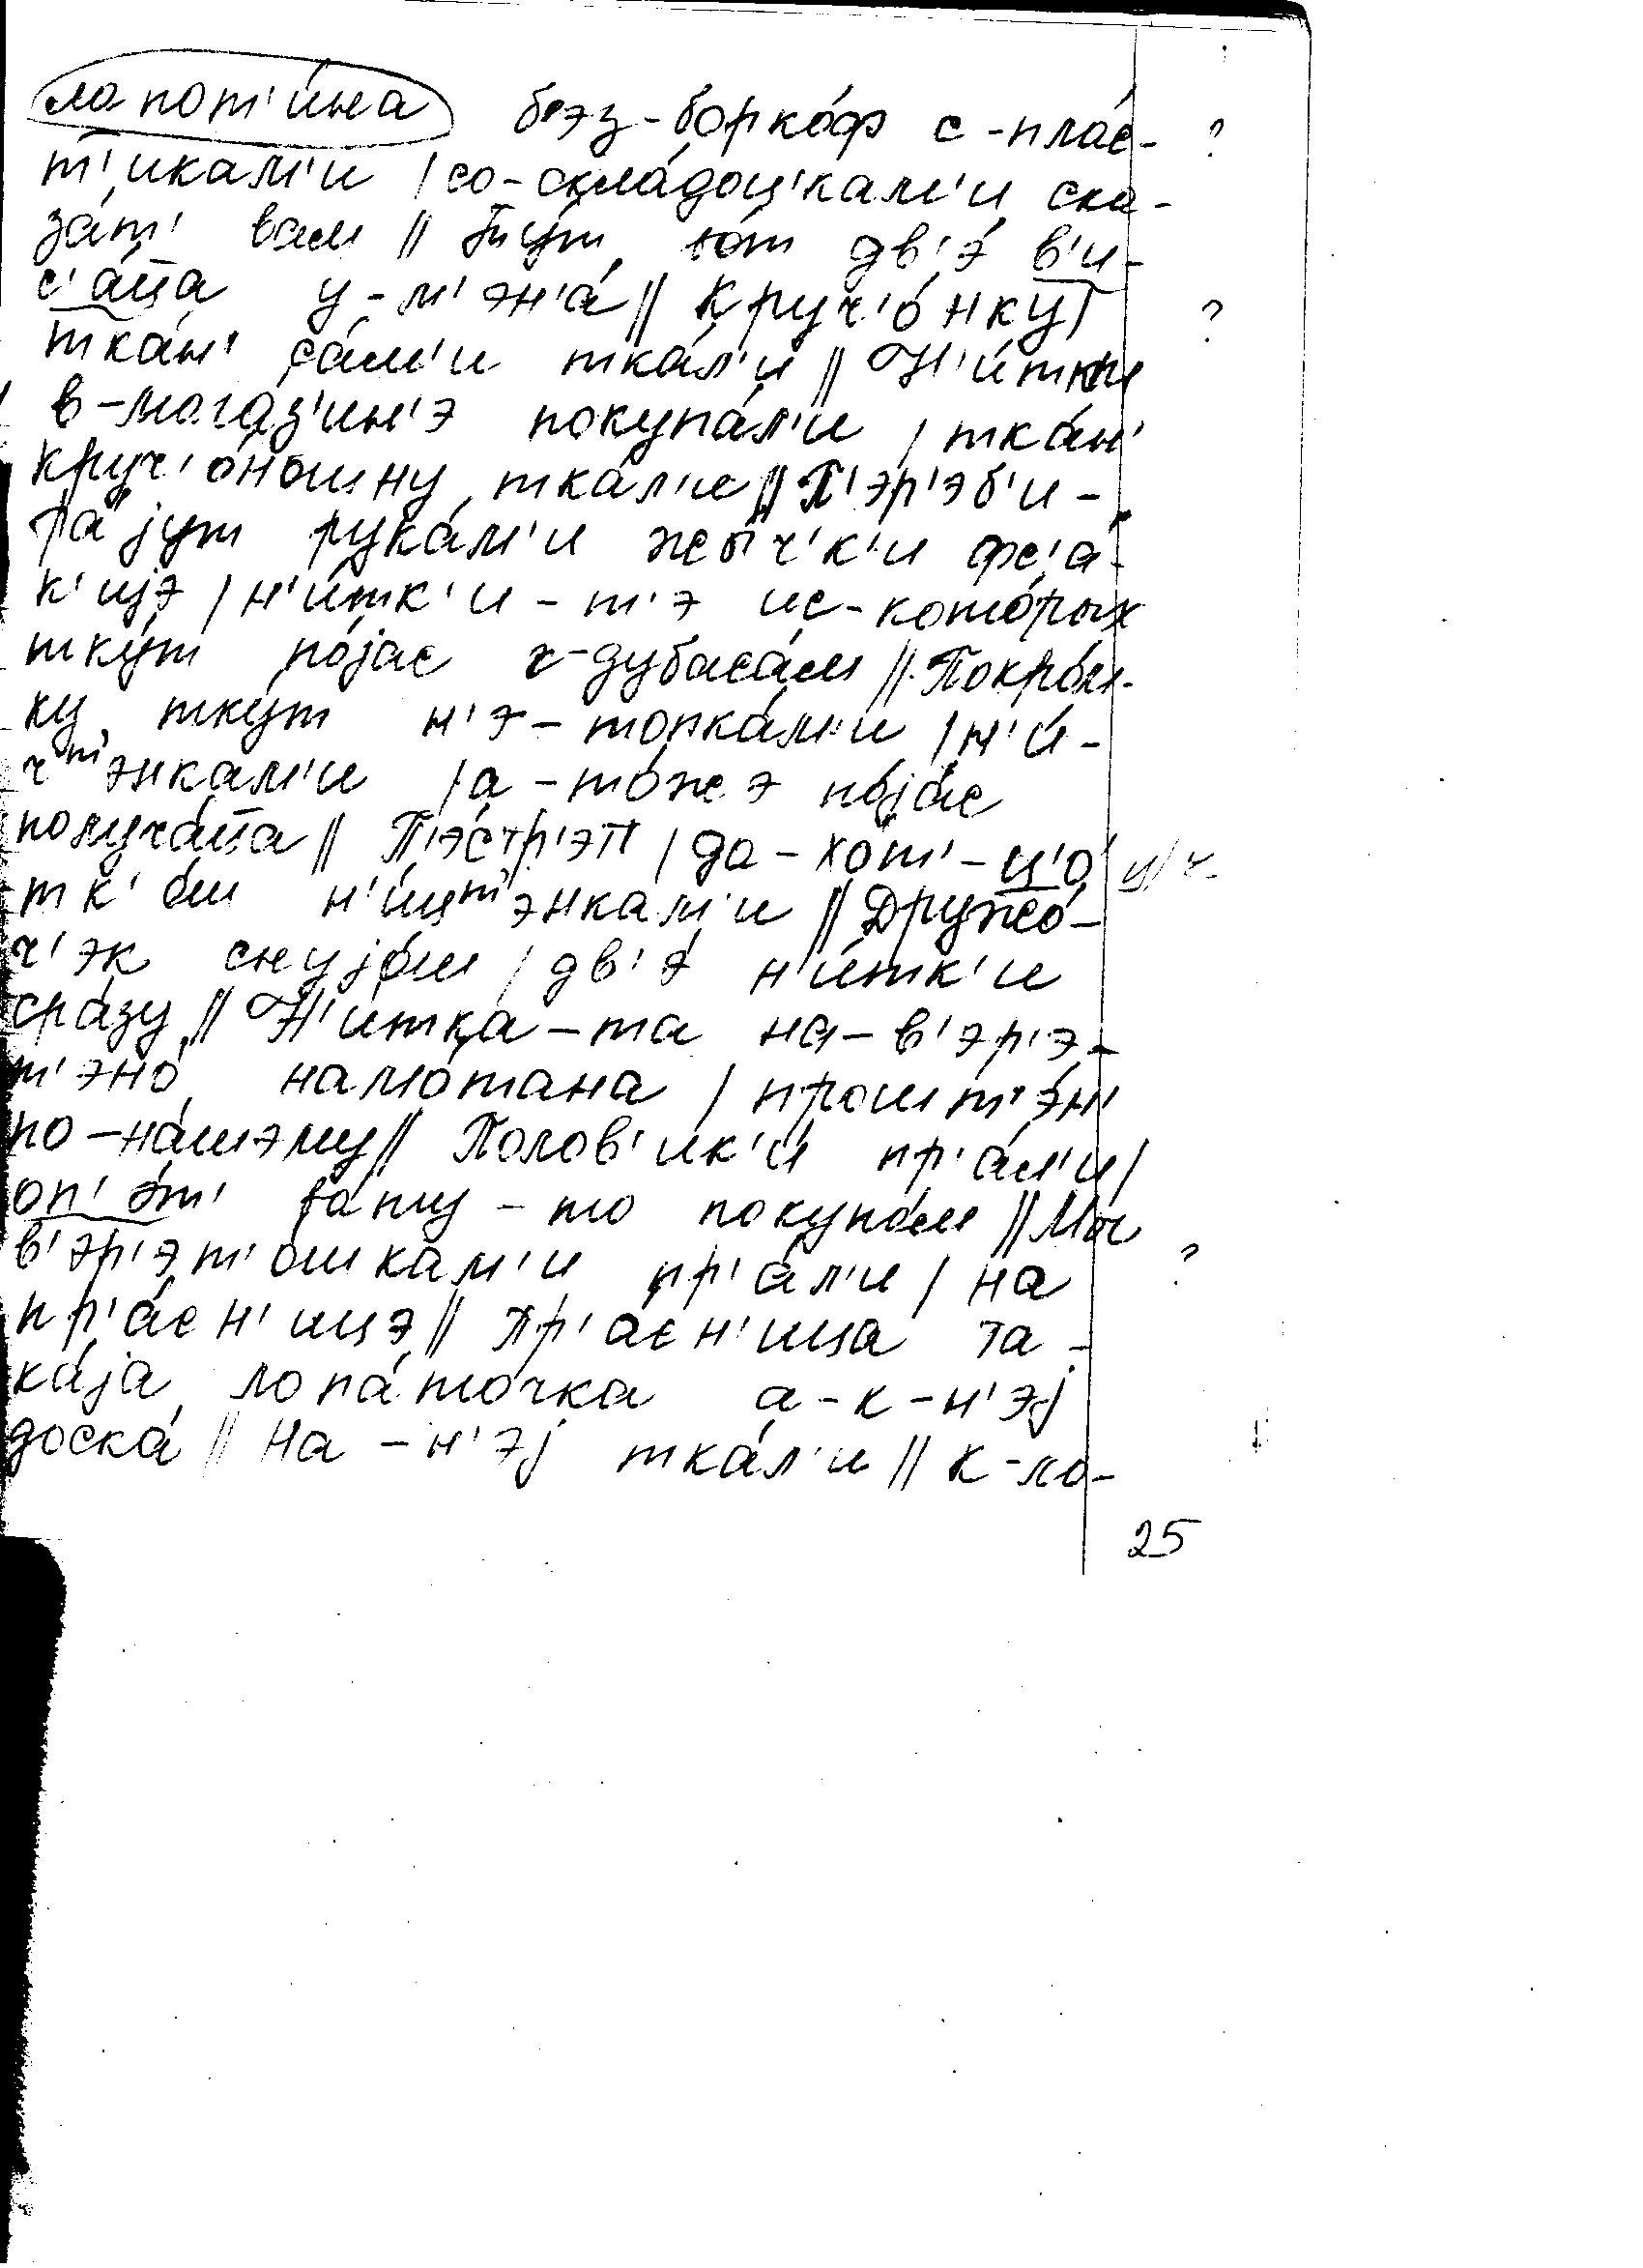 лопот'и́на б'эз-борко́ф с-пла́с- ?
т'икам'и / со-скла́доц'кам'и ска-
за́т' вам // Ту́т во́т дв'э́ в'и-
с'а́ца у-м'эн'а́ // Круч'о́нку / ?
тка́н' са́м'и тка́л'и // Н'и́тки
в-магаз'и́н'э покупа́л'и / тка́н'
круч'о́ношну тка́л'и // П'эр'эб'и-
ра́jут рука́м'и жы́ч'к'и фс'а́-
к'иjэ / н'и́тк'и-т'э ис-кото́рых
тку́т по́jас г-дубаса́м // Покро́м-
ку тку́т н'э-топка́м'и / н'и́-
ч^т'энкам'и / а-то́жэ по́jас
получа́ца // П'э́стр'эт' / да-хот'-ц'о́ ц/ч
тк'о́ш н'и́щ^т'энкам'и // Дружо́-
ч'эк снуjо́ш / дв'э́ н'и́тк'и
сра́зу // Н'и́тка-та на-в'эр'э-
т'эно́ намо́тана / прошт'э́н'
по-на́шэму // Полов'ик'и́ пр'а́л'и /
оп'э́т' ва́ту-то покупа́м // Мы́
в'эр'эт'о́шкам'и пр'а́л'и / на ?
пр'а́сн'ицэ // Пр'а́сн'ица та-
ка́jа лопа́точка а-к-н'эj
доска́ // На-н'эj тка́л'и // К-ло-
25